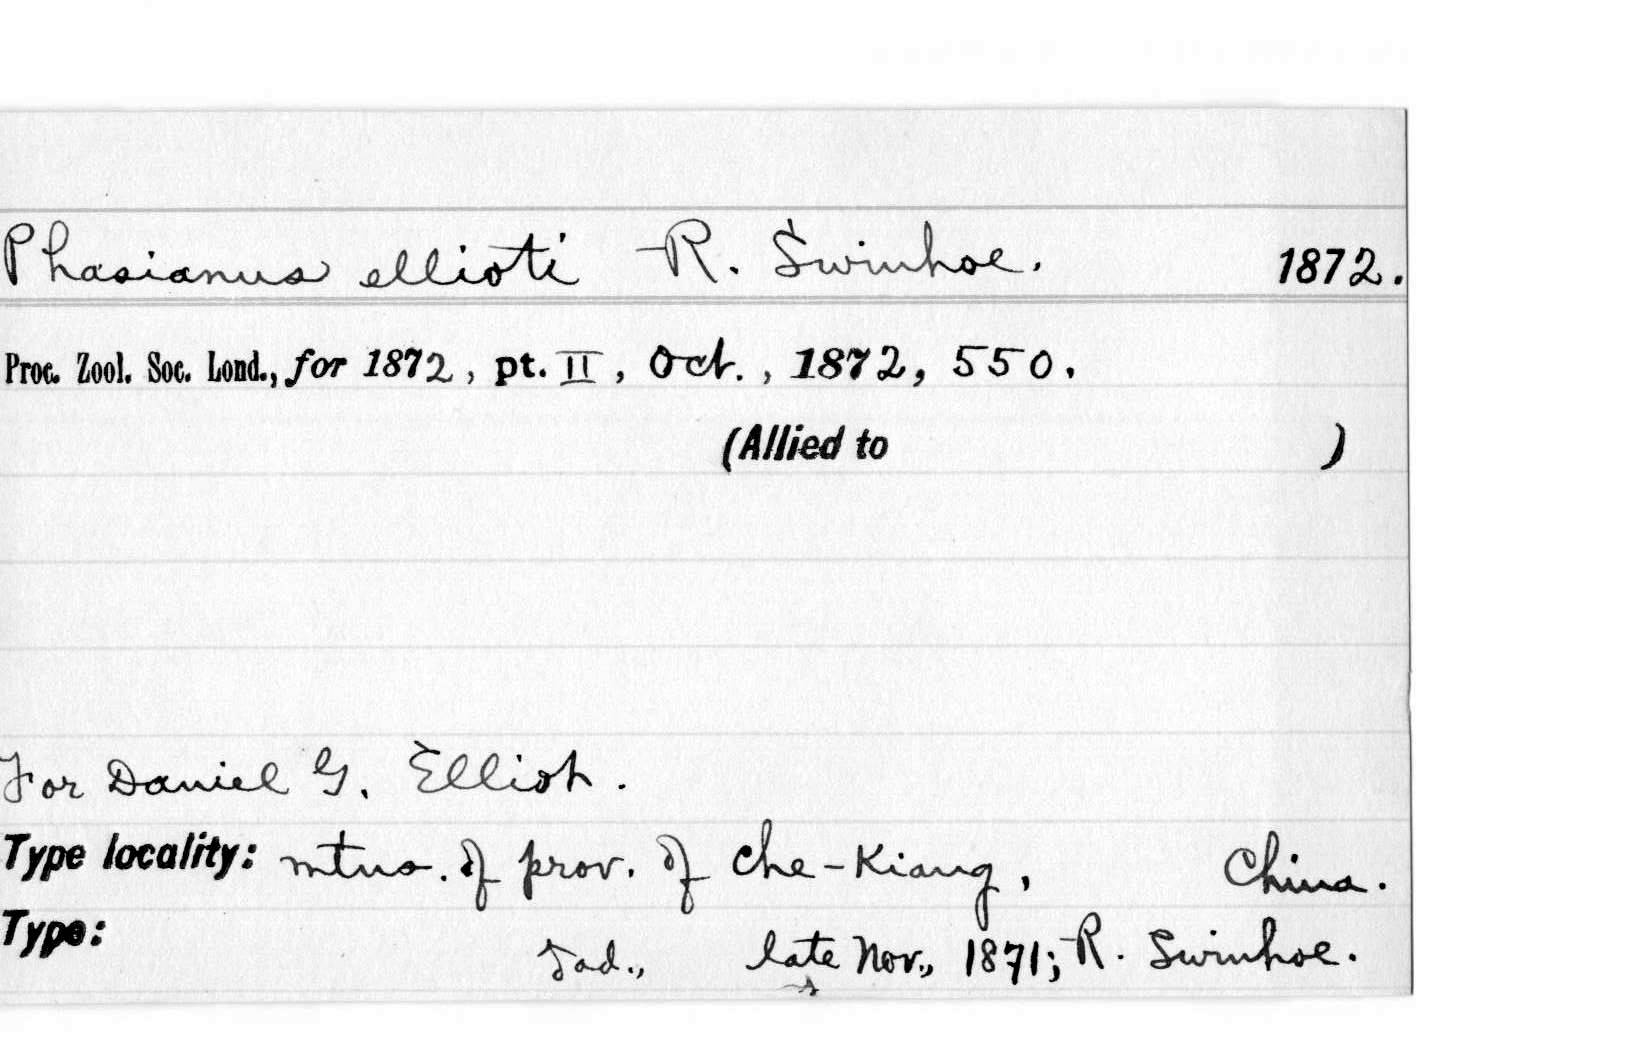 Phasianus ellioti R. Swinhoe. 1872.
Proc. Zool. Soc. Lond., for 1872, pt. II, Oct., 1872, 550.
(Allied to )
For Daniel G. Elliot.
Type locality: mtns. of prov. of Che-Kiang, China.
Type:
ad., late Nov., 1871; R. Swinhoe.